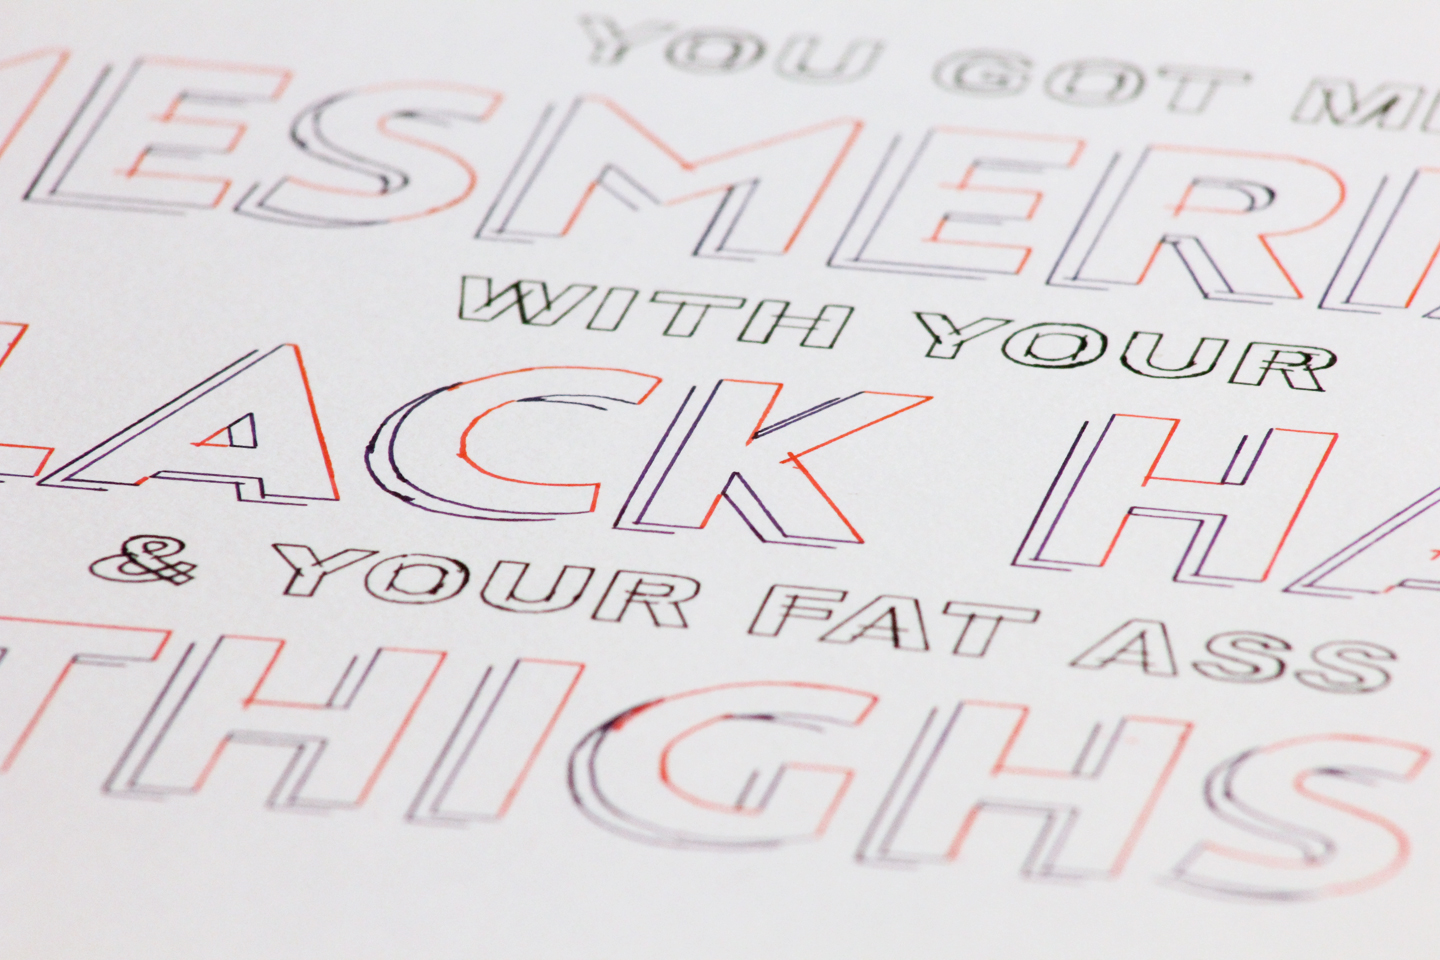 YOU GOT ME
MESMERI
WITH YOUR
LACK HA
& YOUR FAT ASS
THIGHS